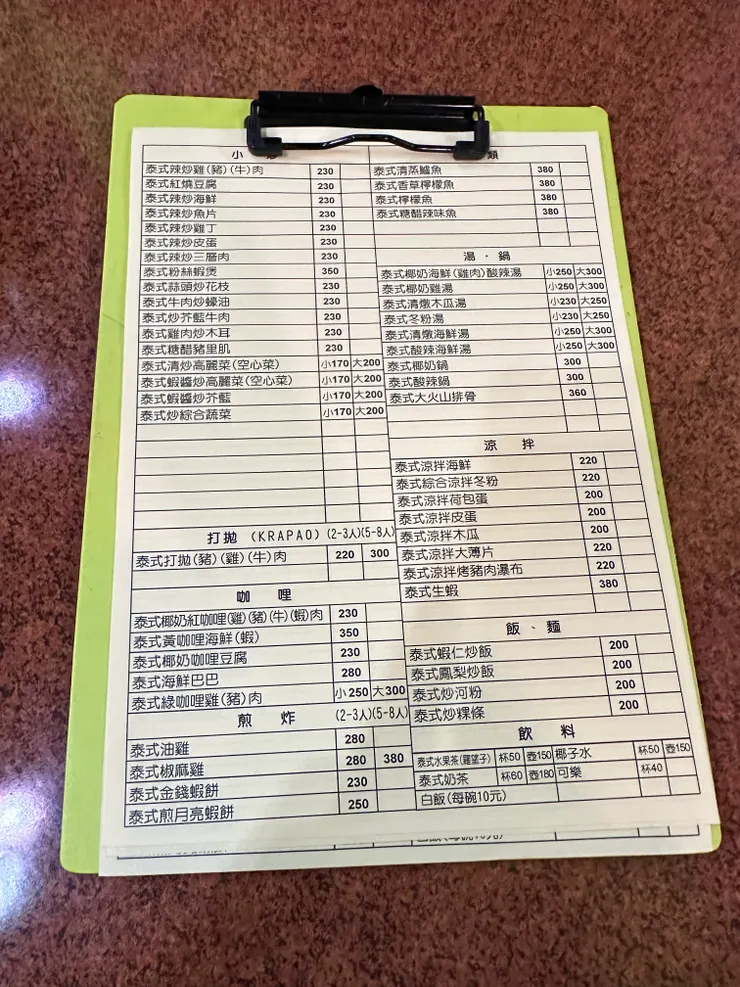 小
泰式辣炒雞(豬)(牛)肉 230
泰式紅燒豆腐 230
泰式辣炒海鮮 230
泰式辣炒魚片 230
泰式辣炒雞丁 230
泰式辣炒皮蛋 230
泰式辣炒三層肉 230
泰式粉絲蝦煲 350
泰式蒜頭炒花枝 230
泰式牛肉炒蠔油 230
泰式炒芥藍牛肉 230
泰式雞肉炒木耳 230
泰式糖醋豬里肌 230
泰式清炒高麗菜(空心菜) 小170 大200
泰式蝦醬炒高麗菜(空心菜) 小170 大200
泰式蝦醬炒芥藍 小170 大200
泰式炒綜合蔬菜 小170 大200
打拋 (KRAPAO) (2-3人)(5-8人)
泰式打拋(豬)(雞)(牛)肉 220 300
咖 哩
泰式椰奶紅咖哩(雞)(豬)(牛)(蝦)肉 230
泰式黃咖哩海鮮(蝦) 350
泰式椰奶咖哩豆腐 230
泰式海鮮巴巴 280
泰式綠咖哩雞(豬)肉 小250 大300
煎 炸 (2-3人)(5-8人)
泰式油雞 280
泰式椒麻雞 280 380
泰式金錢蝦餅 230
泰式煎月亮蝦餅 250
類
泰式清蒸鱸魚 380
泰式香草檸檬魚 380
泰式檸檬魚 380
泰式糖醋辣味魚 380
湯 · 鍋
泰式椰奶海鮮(雞肉)酸辣湯 小250 大300
泰式椰奶雞湯 小250 大300
泰式清燉木瓜湯 小230 大250
泰式冬粉湯 小230 大250
泰式清燉海鮮湯 小250 大300
泰式酸辣海鮮湯 小250 大300
泰式椰奶鍋 300
泰式酸辣鍋 300
泰式大火山排骨 360
涼 拌
泰式涼拌海鮮 220
泰式綜合涼拌冬粉 220
泰式涼拌荷包蛋 200
泰式涼拌皮蛋 200
泰式涼拌木瓜 200
泰式涼拌大薄片 220
泰式涼拌烤豬肉瀑布 220
泰式生蝦 380
飯 、 麵
泰式蝦仁炒飯 200
泰式鳳梨炒飯 200
泰式炒河粉 200
泰式炒粿條 200
飲 料
泰式水果茶(羅望子) 杯50 壺150 椰子水 杯50 壺150
泰式奶茶 杯60 壺180 可樂 杯40
白飯(每碗10元)